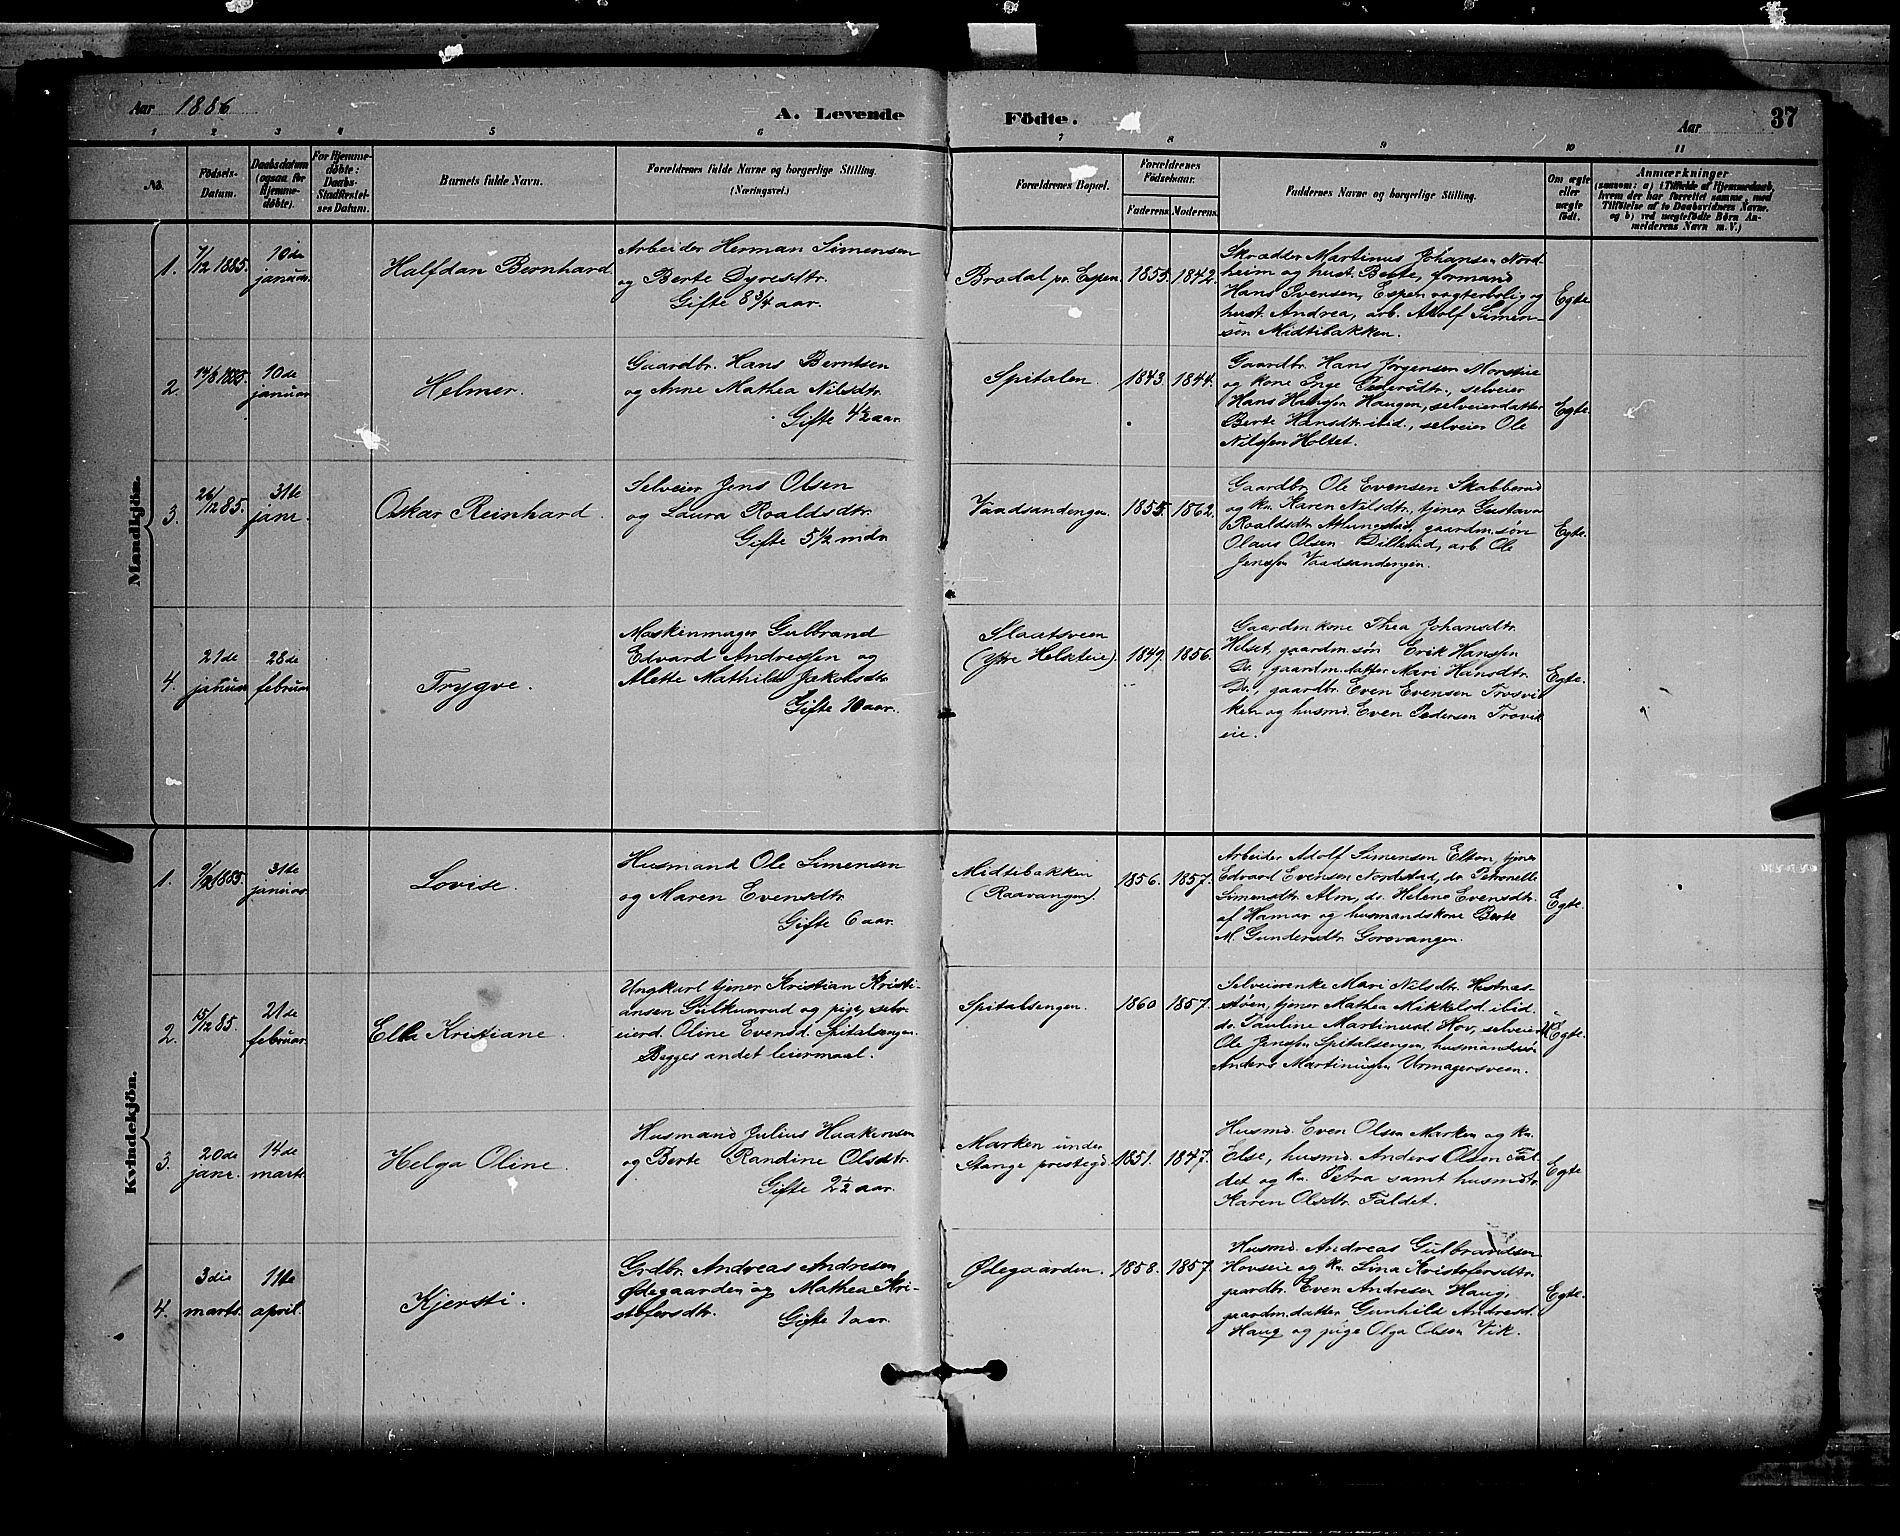 Aar 1886
A. Levende Födte.
Aar
37
1 2 3 4 5 6 7 8 9 10 11
No.
Födsels-
Datum.
Daabsdatum
(ogsaa for
Hjemme-
døbte).
For Hjemme-
døbte:
Daabs-
Stadfæstel-
ses Datum.
Barnets fulde Navn.
Forældrenes fulde Navne og borgerlige Stilling.
(Næringsvei.)
Forældrenes Bopæl.
Forældrenes
Födselsaar.
Faderens.
Moderens.
Faddernes Navne og borgerlige Stilling.
Om ægte
eller
uægte
födt.
Anmærkninger
(saasom: a) i Tilfælde af Hjemmedaab,
hvem der har forrettet samme, med
Tilföielse af to Daabsvidners Navne.
og b) ved uægtefödte Börn An-
melderens Navn m. V.)
Mandkjön.
1.
7/12 1885.
10de
januar.
Halfdan Bernhard
Arbeider Herman Simensen
og Berte Dyresdtr.
Gifte 8 3/4 aar.
Brodal pr. Espen
1855.
1842.
Skrædder Martinus Johansen Nord-
heim og hust. Berte, formand
Hans Iversen, Espen vogterbolig og
hust. Andrea, arb. Adolf Simen-
sen Midtibakken.
Egte
2.
14/8 1885.
10de
januar
Helmer.
Gaardbr. Hans Berntsen
og Anne Mathea Nilsdtr.
Gifte 4 1/2 aar.
Spitalen.
1843.
1844.
Gaardbr. Hans Jørgensen Morstue
og kone Inge Pedersdtr., selveier
Hans Hansen Haugen, selveierdatter
Berte Hansdtr. ibid., selveier Ole
Nilssen Holset.
Egte.
3.
26/12 85.
31te
janr.
Oskar Reinhard.
Selveier Jens Olsen
og Laura Roaldsdtr.
Gifte 5 1/2 mdn
Vaadsandengen.
1855.
1862.
Gaardbr. Ole Evensen Skabberud
og kn. Karen Nilsdtr., tjener Gustava
Roaldsdtr. Atlungstad, gaardm.søn
Olaus Olsen Dillerud, arb. Ole
Jenssen Vaadsandengen.
Egte.
4.
21de
januar
28de
februar
Trygve.
Maskinmager Gulbrand
Edvard Andressen og
Alette Mathilde Jakobsdtr.
Gifte 10 aar.
Slaatsveen
(Ytre Helseteie).
1849.
1856.
Gaardm.kone Thea Johansdtr.
Helset, gaardm.søn Erik Hanssen
Do., gaardm.datter Mari Hansdtr.
Do., gaardbr. Even Evensen Trosvi-
ken og husmd. Even Pedersen Trosvik-
eie.
Egte.
Kvindekjön.
1.
31te
januar.
Lovise.
Husmand Ole Simensen
og Maren Evensdtr.
Gifte 6 aar.
Midtibakken
(Raavangen).
1856.
1857.
Arbeider Adolf Simensen Elton, tjener
Edvard Evensen Nordstad, do. Petronelle
Simensdtr. Alm, do. Helene Evensdtr.
af Hamar og husmandskone Berte
M. Gundersdtr. Gorovangen.
Egte.
2.
15/12 85.
21de
februar.
Ella Kristiane.
Ungkarl tjener Kristian Kristi-
ansen Gulkunrud og pige, selv-
eierd. Oline Evensd. Spitalsengen.
Begges andet leiermaal.
Spitalsengen.
1860
1857.
Selveierenke Mari Nilsdtr. Hestnes-
støen, tjener Mathea Mikkelsd. ibid.
do. Pauline Martinusd. Hov, selveier
Ole Jenssen Spitalsengen, husmandssøn
Anders Martinussen Urmagersveen.
Uegte.
3.
20de
janr.
14de
marts.
Helga Oline.
Husmand Julius Haakensen
og Berte Randine Olsdtr.
Gifte 2 1/2 aar.
Marken under
Stange prestegd.
1851.
1847.
Husmd. Even Olsen Marken og kn.
Else, husmd. Anders Olsen Fal-
det og kn. Petra samt husmdtr.
Karen Olsdtr. Faldet.
Egte
4.
3die
marts.
11te
april.
Kjersti.
Grdbr. Andreas Andresen
Ødegaarden og Mathea Kri-
stofersdtr.
Gifte 1 aar.
Ødegaarden.
1858.
1857.
Husmd. Andreas Gulbrandsen
Hovseie og kn. Lina Kristofersdtr.
gaardbr. Even Andresen Haug,
gaardm.datter Gunhild Andresd.
Haug og pige Olga Olsen Vik.
Egte.